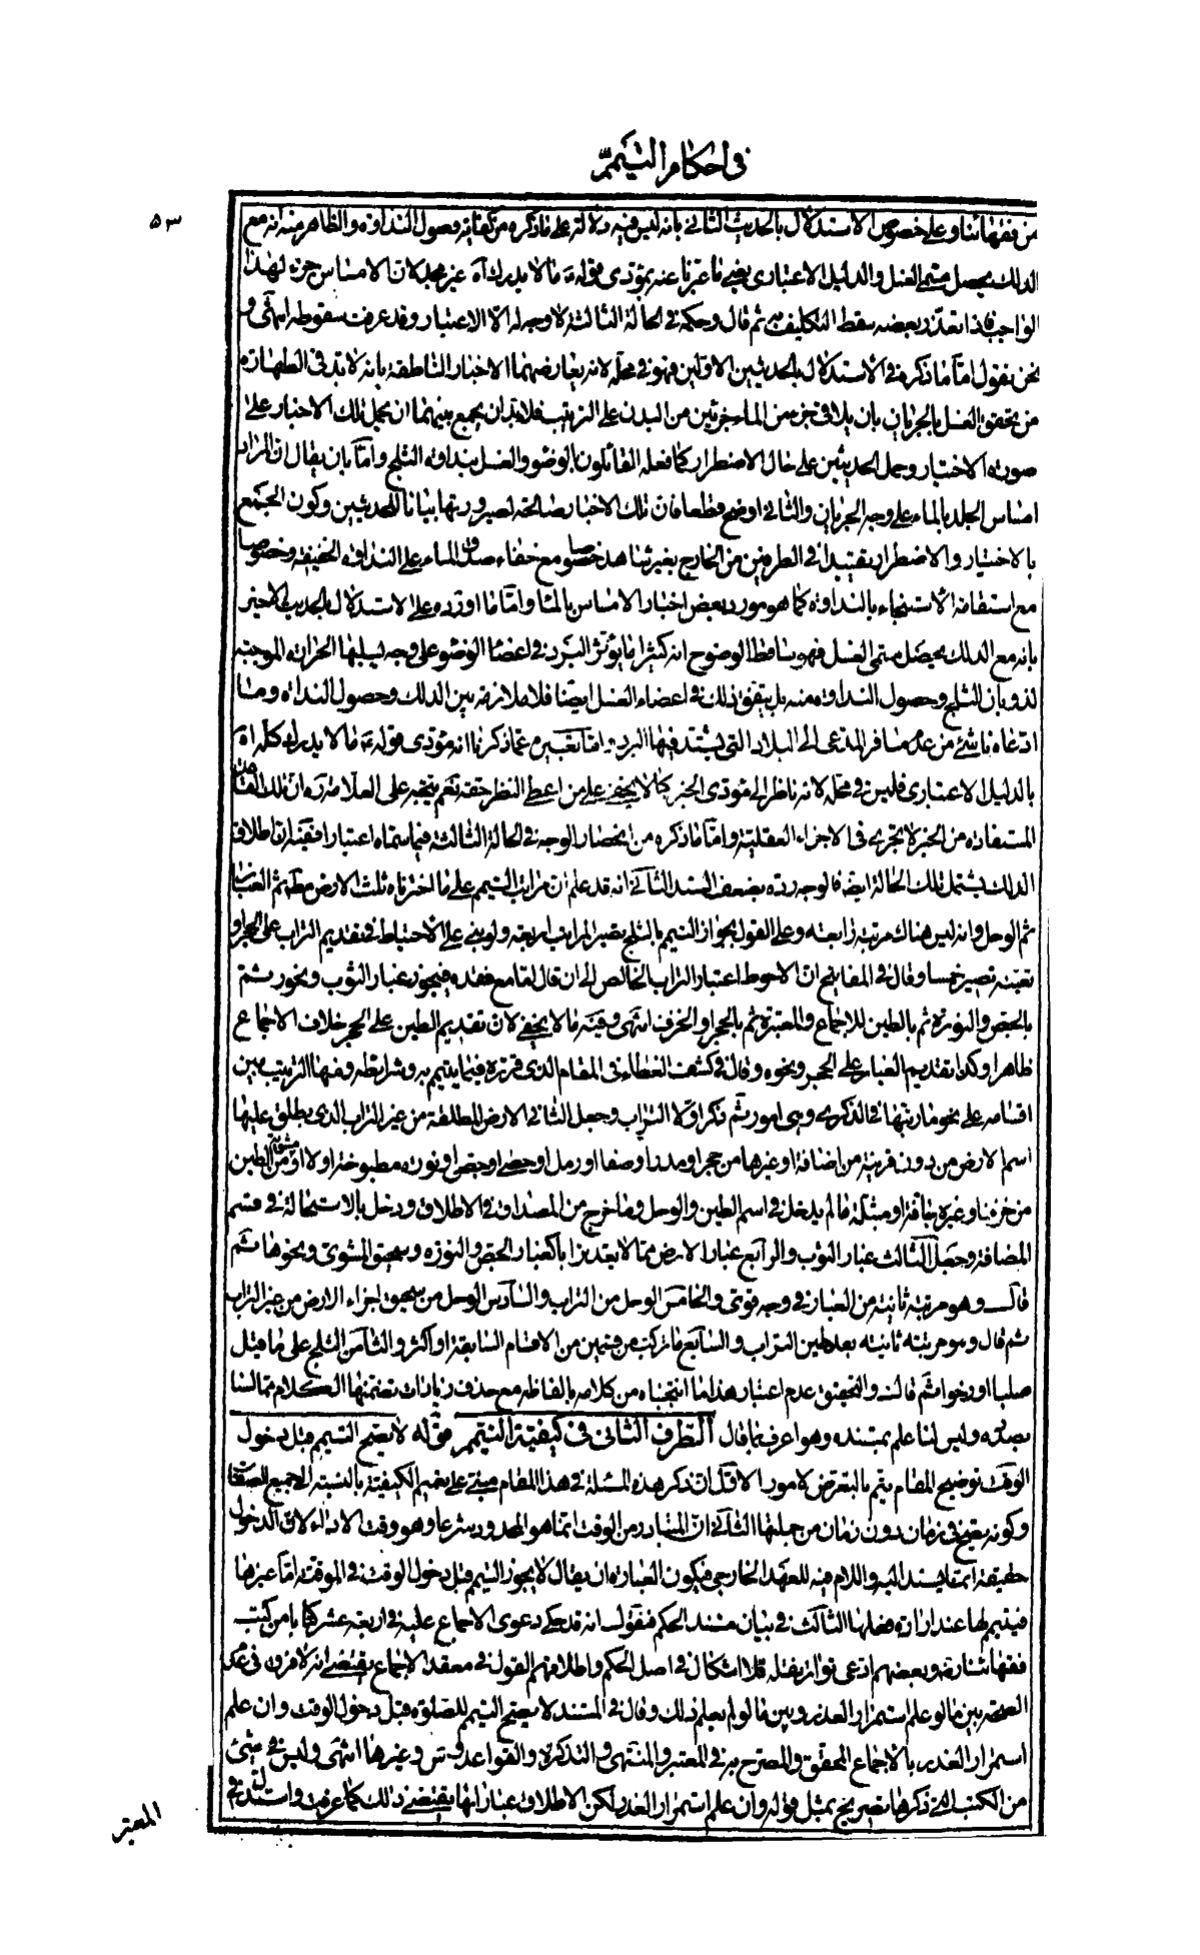 في احكام التيمم
٥٣
من فقهائنا وعلى خصوص الاستدلال بالحديث الثاني بانه ليس فيه دلالة على ما ذكره من كفاية وصول النداوة والظاهر منه انه مع
الدلك يحصل مسمى الغسل والدليل الاعتباري يعني ما عبرنا عنه بمؤدى قوله ما لا يدرك آه غير مجد لان الامساس جزء لهذا
الواجب فاذا تعذر بعضه سقط التكليف به ثم قال وحكمه في الحالة الثالثة لا وجه له الا الاعتبار وقد عرفت سقوطه انتهى و
نحن نقول اما ما ذكره في الاستدلال بالحديثين الاولين فهو في محله لانه يعارضهما الاخبار الناطقة بانه لا بد في الطهارة
من تحقق الغسل بالجريان بان يلاقي جزء من الماء جزئين من البدن على الترتيب فلا بد ان يجمع بينهما ان يحمل تلك الاخبار على
صورة الاختيار وحمل الحديثين على حال الاضطرار كما فعله القائلون بالوضوء والغسل بنداوة الثلج واما بان يقال ان المراد
امساس الجلد بالماء على وجه الجريان والثاني اوضح قطعا فان تلك الاخبار صالحة لصيرورتها بيانا للحديثين وكون الجمع
بالاختيار والاضطرار تقييدا في الطرفين من الخارج بغير شاهد خصوصا مع خفاء صدق الماء على النداوة الخفيفة وخصوصا
مع استفاضة الاستنجاء بالنداوة كما هو مورد بعض اخبار الامساس بالماء واما ما اورده على الاستدلال بالحديث الاخير
بانه مع الدلك يحصل مسمى الغسل فهو ساقط لوضوح انه كثيرا ما يؤثر البرد في اعضاء الوضوء على وجه يسلبها الحرارة الموجبة
لذوبان الثلج وحصول النداوة منه بل يتفق ذلك في اعضاء الغسل ايضا فلا ملازمة بين الدلك وحصول النداوة وما
ادعاه ناشئ من عدم مسافرة المدعى الى البلاد التي يشتد فيها البرد واما تعبيره عما ذكرنا انه مؤدى قوله ما لا يدرك كله آه
بالدليل الاعتباري فليس في محله لانه ناظر الى مؤدى الخبر كما لا يخفى على من اعطى النظر حقه نعم يتجه على العلامة ره ان تلك القاعدة
المستفادة من الخبر لا تجري في الاجزاء العقلية واما ما ذكره من انحصار الوجه في الحالة الثالثة فيما سماه اعتبارا ففيه ان اطلاق
الدلك يشمل تلك الحالة ايضا فالوجه رده بضعف السند الثاني انه قد علم ان مراتب التيمم على ما اخترناه ثلث الارض مطلقا ثم الغبار
ثم الوحل وانه ليس هناك مرتبة رابعة وعلى القول بجواز التيمم بالثلج يصير المراتب اربعة ولو بني على الاحتياط في تقديم التراب على الحجر او
تعينه تصير خمسا وقال في المفاتيح ان الاحوط اعتبار التراب الخالص الى ان قال اما مع فقده فيجوز بغبار الثوب ونحوه ثم
بالجص والنورة ثم بالطين للاجماع والمعتبرة ثم بالحجر او الخزف انتهى وفيه ما لا يخفى لان تقديم الطين على الحجر خلاف الاجماع
ظاهرا وكذا تقديم الغبار على الحجر ونحوه وقال في كشف الغطاء في المقام الذي قرره فيما يتيمم به وشرائطه ومنها الترتيب بين
اقسامه على نحو ما رتبها في الذكرى وهي امور ثم ذكر اولا التراب وجعل الثاني الارض المطلقة من غير التراب الذي يطلق عليها
اسم الارض من دون قرينة من اضافة او غيرها من حجر او مدر او صفا او رمل او حصى او جص او نورة مطبوخة او لا او مشوي من الطين
من خزف او غيره جافة او مبتلة ما لم يدخل في اسم الطين والوحل وما خرج من المصداق في الاطلاق ودخل بالاستحالة في قسم
المضافة وجعل الثالث غبار الثوب والرابع غبار الارض مما لا يعد ترابا كغبار الجص والنورة وسحيق المشوي ونحوها ثم
قال وهو مرتبة ثانية من الغبار في وجه قوي والخامس الوحل من التراب والسادس الوحل من سحيق اجزاء الارض من غير التراب
ثم قال وهو مرتبة ثانية بعد طين التراب والسابع ما تركب من قسمين من الاقسام السابقة او اكثر والثامن الثلج على ما قيل
صلبا او رخوا ثم قال والتحقيق عدم اعتباره هذا ما انتخبناه من كلامه بالفاظه مع حذف زيادات تضمنها الكلام مما لسنا
بصدده وليس لنا علم بمستنده وهو اعرف بما قال الطرف الثاني في كيفية التيمم قوله لا يصح التيمم قبل دخول
الوقت توضيح المقام يتم بالتعرض لامور الاول ان ذكر هذه المسئلة في هذا المقام مبني على تعميم الكيفية بالنسبة الى جميع الصفات
وكونه يصح في زمان دون زمان من جملتها الثاني ان المتبادر من الوقت انما هو المحدود شرعا وهو وقت الاداء لان الدخول
حقيقة انما يسند اليه واللام فيه للعهد الخارجي فيكون العبارة ان يقال لا يجوز التيمم قبل دخول الوقت في الموقتة اما غيرها
فيتيمم لها عند ارادة فعلها الثالث في بيان مستند الحكم فنقول انه قد حكي دعوى الاجماع عليه في اربعة عشر كتابا من كتب
فقهائنا رض وبعضهم ادعى تواتر نقله فلا اشكال في اصل الحكم واطلاقهم القول في معقد الاجماع يقتضي انه لا فرق في عدم
الصحة بين ما لو علم استمرار العذر وبين ما لو لم يعلم ذلك وقال في المستند لا يصح التيمم للصلوة قبل دخول الوقت وان علم
استمرار العذر بالاجماع المحقق والمصرح به في المعتبر والمنتهى والتذكرة والقواعد وس وغيرها انتهى وليس في شئ
من الكتب التي ذكرها تصريح بمثل قوله وان علم استمرار العذر لكن الاطلاق عباراتها يقتضي ذلك كما عرفت واستدل في
المعتبر